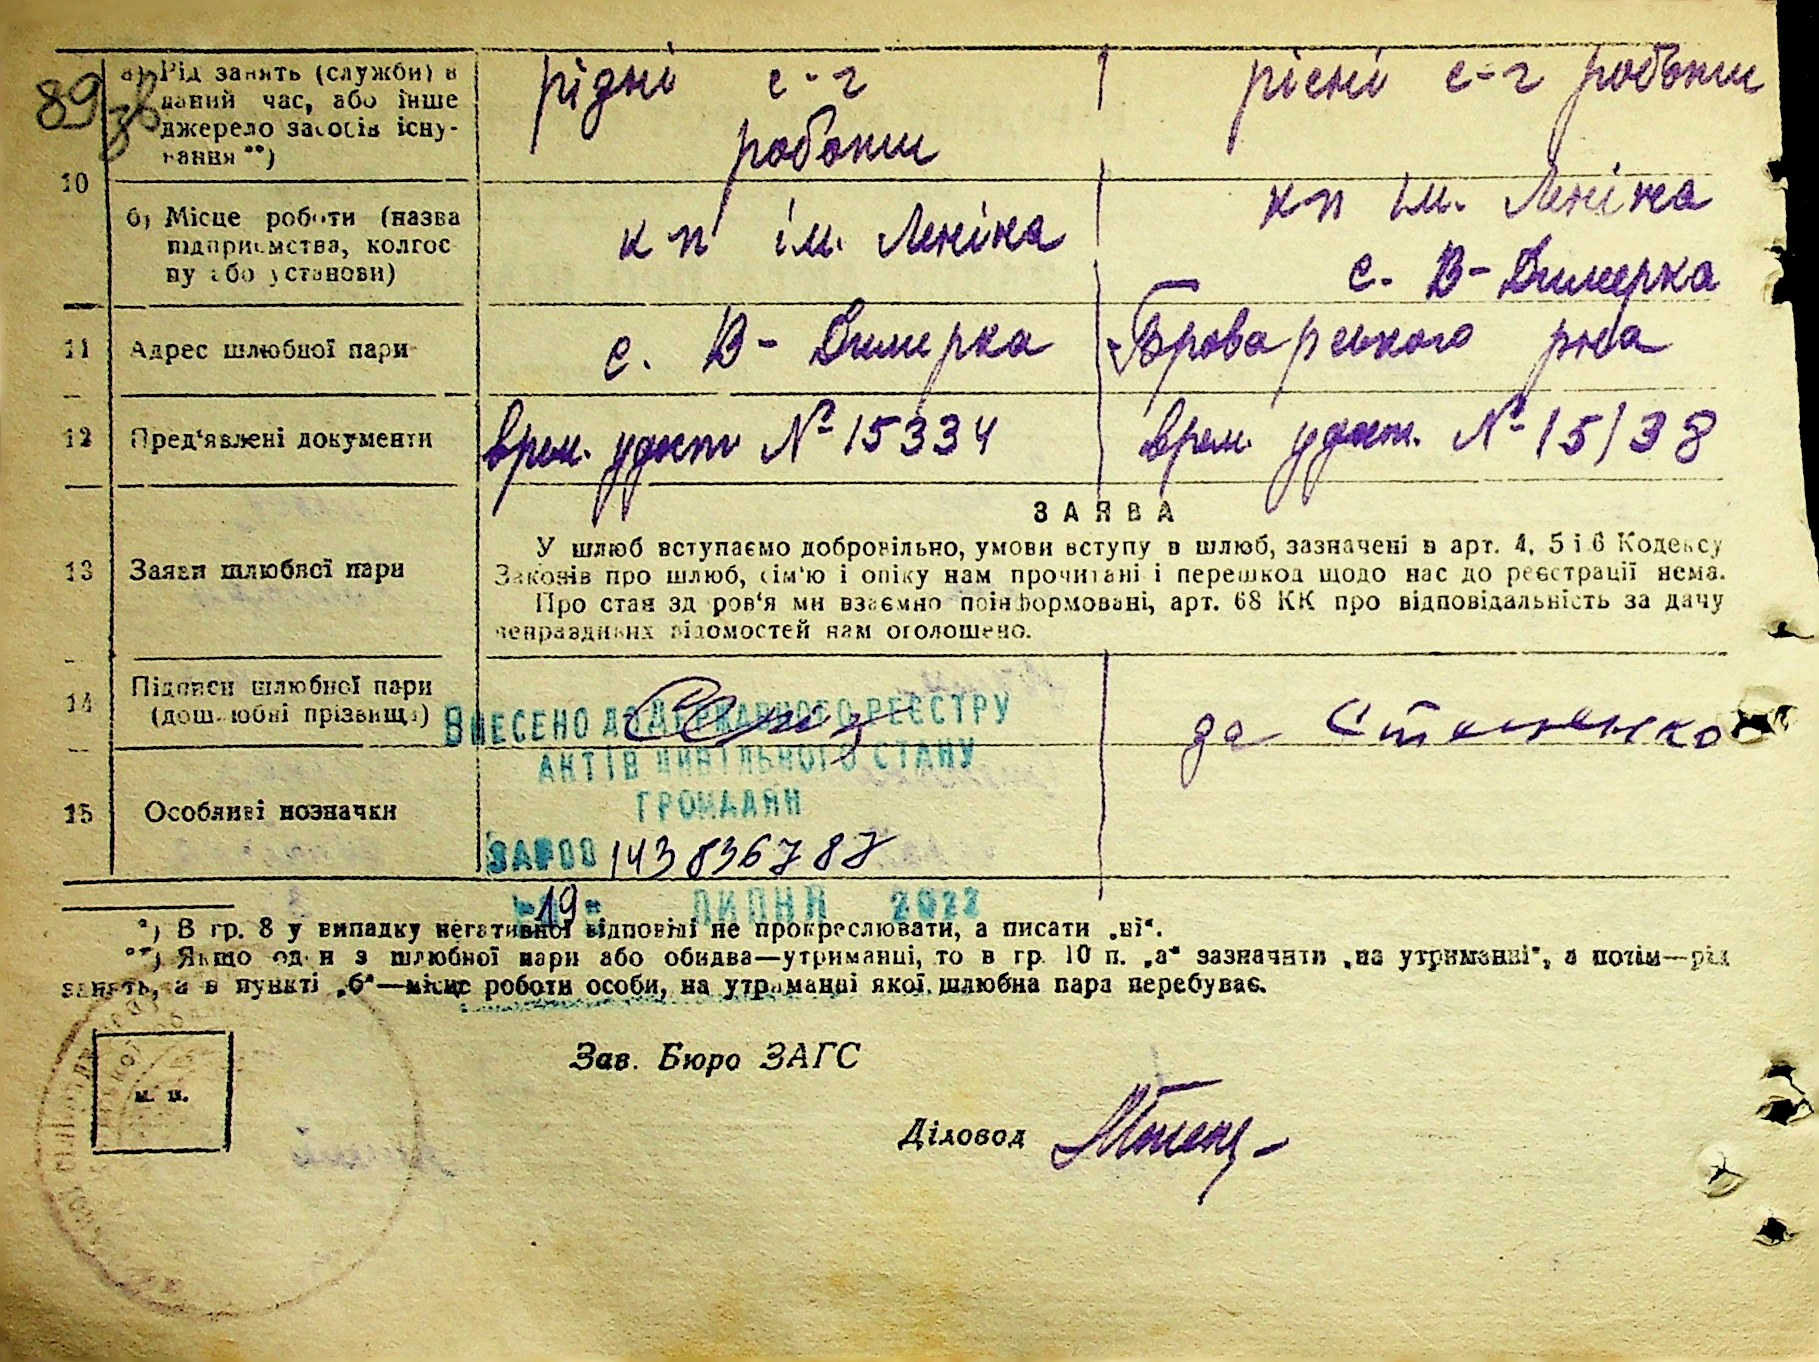 89 зв
10
а) Рід занять (служби) в
даний час, або інше
джерело засобів існу-
вання **)
рідні с-г
роботи
рісні с-г роботи
б) Місце роботи (назва
підприємства, колгос
пу або установи)
кп ім. Леніна
кп ім. Леніна
с. В-Димерка
11
Адрес шлюбної пари
с. В-Димерка
Броварського р-на
12
Пред'явлені документи
врем. удост №15334
врем. удост. №15138
ЗАЯВА
13
Заяви шлюбної пари
У шлюб вступаємо добровільно, умови вступу в шлюб, зазначені в арт. 4, 5 і 6 Кодексу
Законів про шлюб, сім'ю і опіку нам прочитані і перешкод щодо нас до реєстрації нема.
Про стан здоров'я ми взаємно поінформовані, арт. 68 КК про відповідальність за дачу
неправдивих відомостей нам оголошено.
14
Підписи шлюбної пари
(дошлюбні прізвища)
да Степаненко
ВНЕСЕНО ДО ДЕРЖАВНОГО РЕЄСТРУ
АКТІВ ЦИВІЛЬНОГО СТАНУ
ГРОМАДЯН
15
Особливі позначки
ЗА №00 143836787
19 ЛИПНЯ 2022
*) В гр. 8 у випадку негативної відповіді не прокреслювати, а писати „ні“.
**) Якщо один з шлюбної пари або обидва—утриманці, то в гр. 10 п. „а“ зазначити „на утриманні“, а потім—рід
занять, а в пункті „б“—місце роботи особи, на утриманні якої шлюбна пара перебуває.
м. п.
Зав. Бюро ЗАГС
Діловод